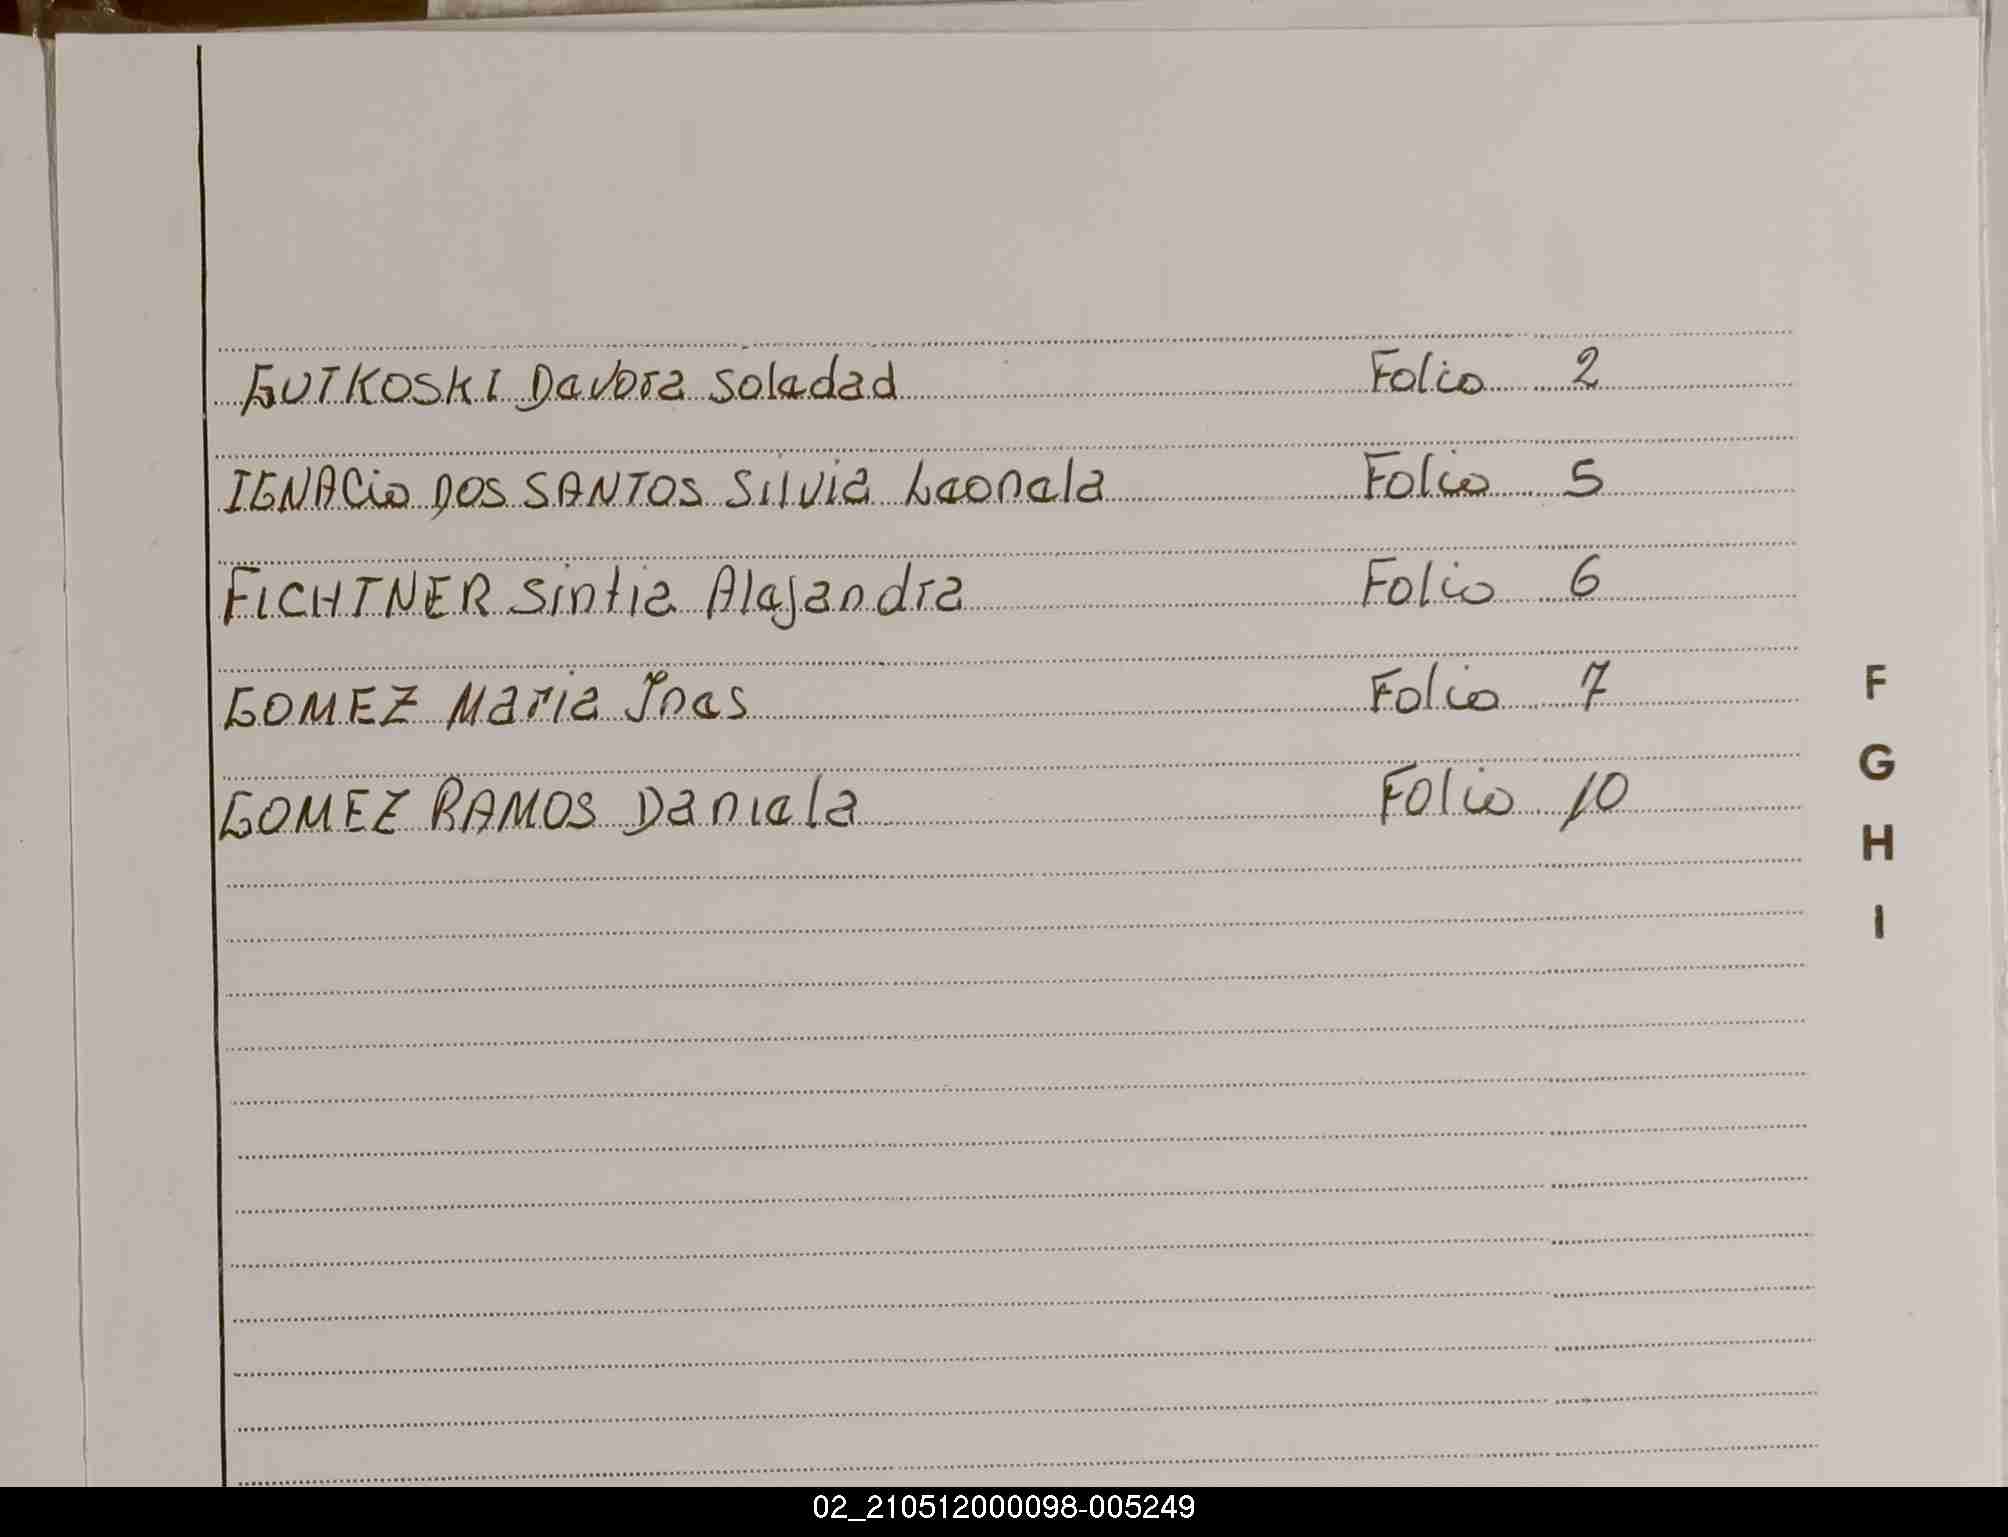 GUTKOSKI Devora Soledad Folio 2
IGNACIO DOS SANTOS Silvia Leonela Folio 5
FICHTNER Sintia Alejandra Folio 6
GOMEZ Maria Ines Folio 7
GOMEZ RAMOS Daniela Folio 10
F
G
H
I
02_210512000098-005249